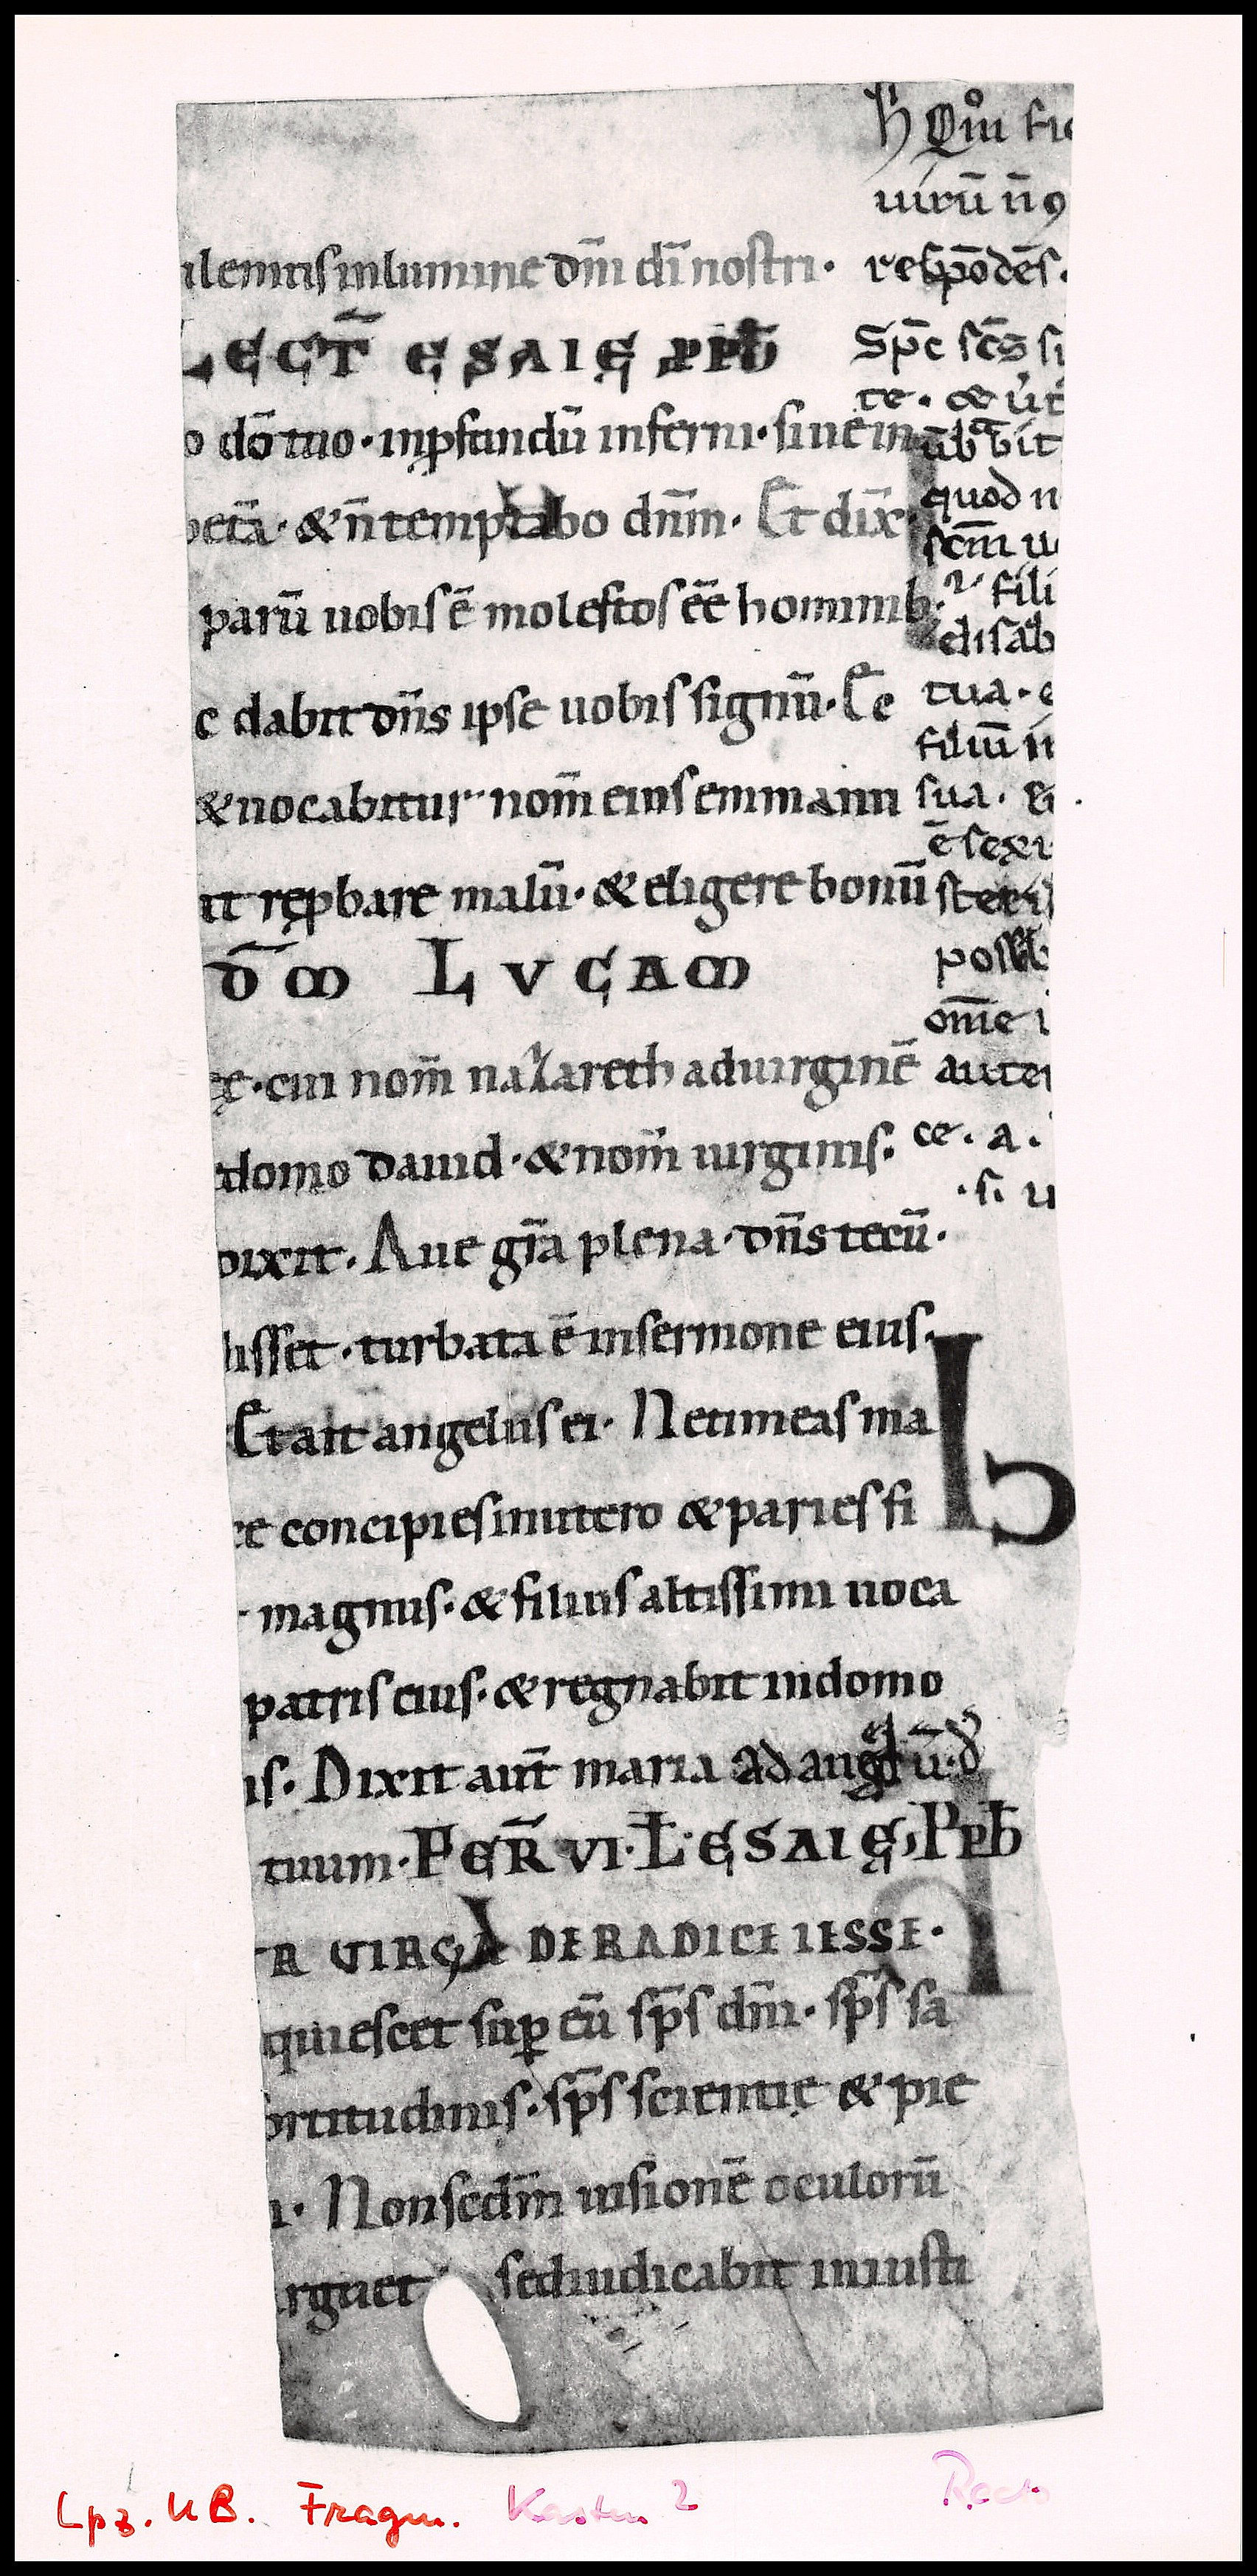 ilemitis in lumine dñi dī nostri·
LECT̄ ESAIE PPH̄
o dō tuo· in ꝓfundū inferni· siue in
petā· & n̄ temptabo dnm̄. Et dix̄
parū uobis ē molestos eē̄ hominib·
c dabit dn̄s ipse uobis signū· Ec
& uocabitur nom̄ eius emmanu
it reꝓbare malū· & eligere bonū
D̄M LVCAM
e·cui nom̄ nazareth ad uirginē
domo dauid·& nom̄ uirginis·
dixit. Aue gr̄a plena·dn̄s tecū·
disset·turbata ē in sermone eius.
Et ait angelus ei· Ne timeas ma
ce concipies in utero & paries fi
magnus·& filius altissimi uoca
patris eius·& regnabit in domo
is· Dixit aut̄ maria ad angelū·
tuum·FER̄ VI·Ł·ESAIE PPH̄
R VIRGA DE RADICE IESSE·
quiescet suꝑ eū sp̄s dn̄i· sp̄s sa
ortitudinis·sp̄s scientie & pie
i· Non secdm̄ uisionē oculorū
rguet sed iudicabit in iusti
uirū n̄ 9
respōdēs.
Sp̄c sc̄s
te·
quod n
scm̄ u
fili
elisab
tua· e
filiū i
sua· &
ē sex
ster
possib
om̄e i
autē
ce· a·
·s· u
Lpz. UB. Fragm. Kasten 2
Recto